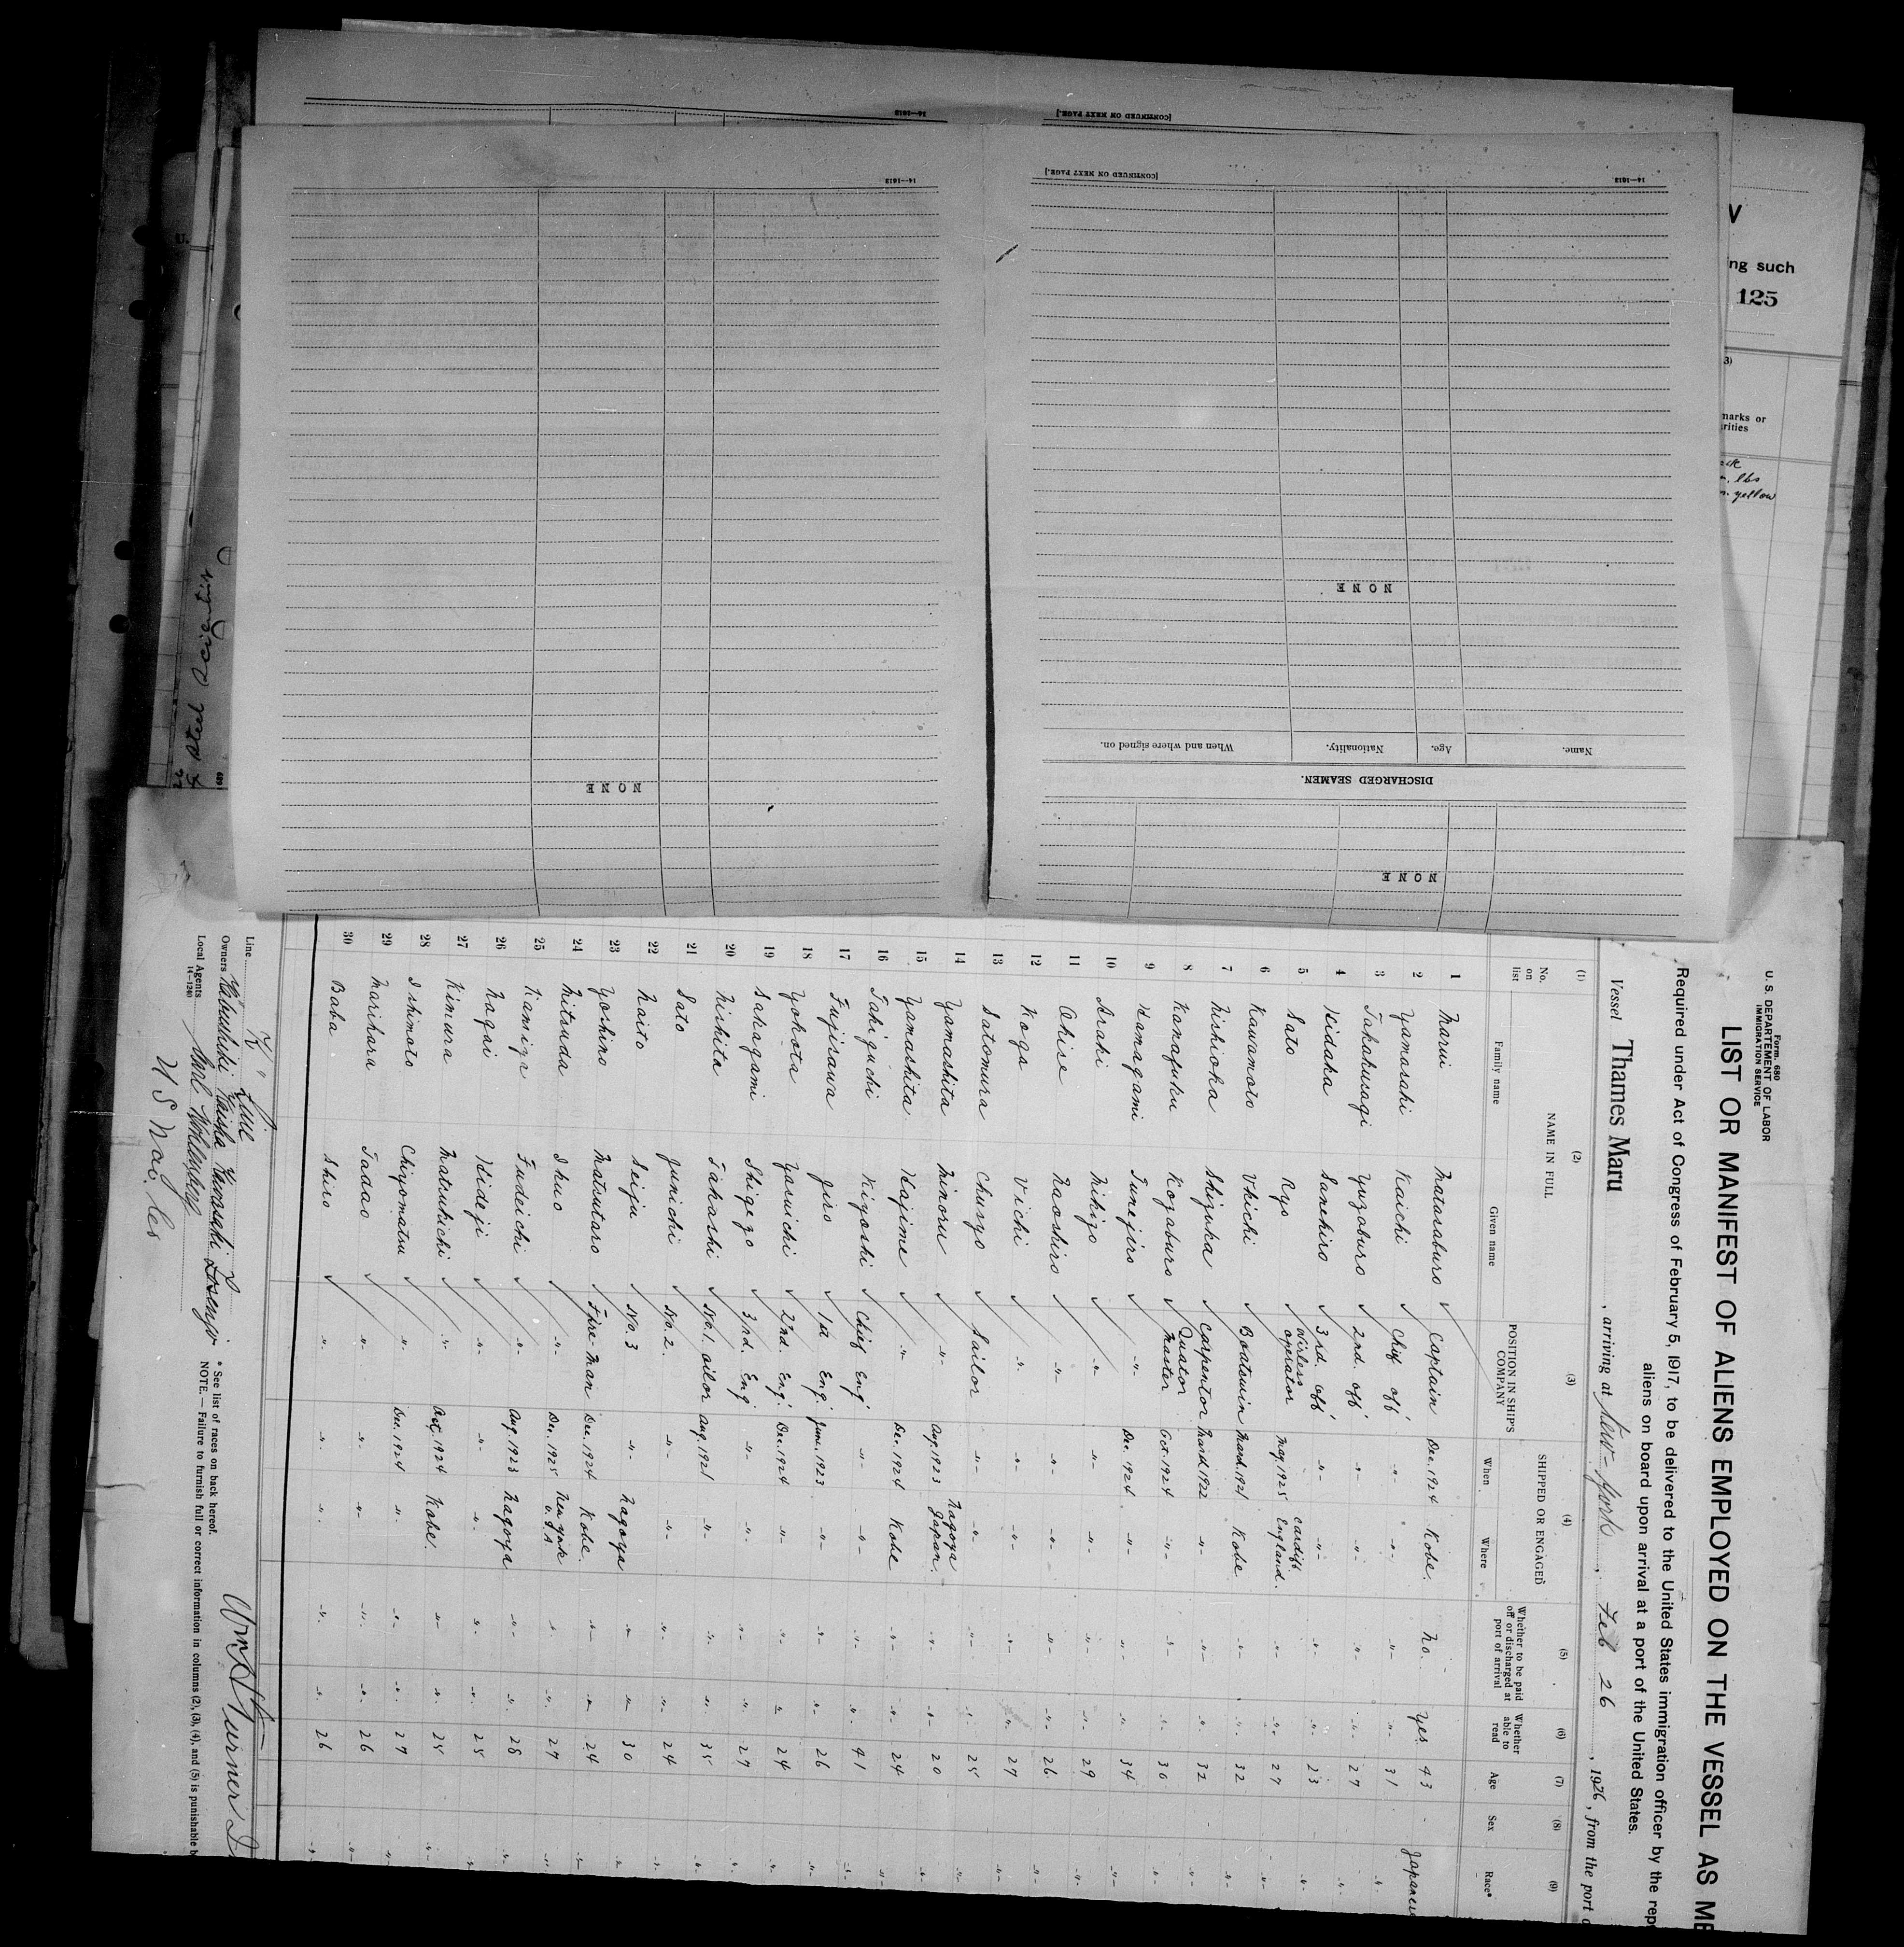 [CONTINUED ON NEXT PAGE.]
14—1613
[CONTINUED ON NEXT PAGE.]
14—1613
14—1613
NONE
Name.
Age.
Nationality.
When and where signed on.
DISCHARGED SEAMEN.
NONE
NONE
ng such
125
marks or
lbs
yellow
U.
689
Form. 680
U. S. DEPARTEMENT OF LABOR
IMMIGRATION SERVICE
LIST OR MANIFEST OF ALIENS EMPLOYED ON THE VESSEL AS ME
Required under Act of Congress of February 5, 1917, to be delivered to the United States immigration officer by the rep
aliens on board upon arrival at a port of the United States.
Vessel Thames Maru, arriving at New-York, Feb 26, 1926, from the port
(1) (2) (3) (4) (5) (6) (7) (8) (9)
No. on list NAME IN FULL Family name Given name POSITION IN SHIP'S COMPANY SHIPPED OR ENGAGED When Where Whether to be paid off or discharged at port of arrival Whether able to read Age Sex Race*
1 Marui Matasaburo Captain Dec. 1924 Kobe. No. Yes 43 Japanese
2 Yamasaki Kaichi Chief off' -"- -"- -"- -"- 31 -"-
3 Takakusagi Yuzoburo 2nd. off' -"- -"- -"- -"- 27 -"-
4 Hidaka Sanehiro 3rd. off' -"- -"- -"- -"- 23 -"-
5 Sato Ryo Wirless operator May. 1925 Cardiff England. -"- -"- 27 -"-
6 Kawamoto Vkichi Boatswin March. 1921 Kobe -"- -"- 32 -"-
7 Nishioka Shizuka Carpentor March 1922 -"- -"- -"- 32 -"-
8 Kanafuku Kogaburo Quator Master Oct. 1924 -"- -"- -"- 30 -"-
9 Hamagami Tunejiro -"- Dec. 1924 -"- -"- -"- 34 -"-
10 Araki Mikizo -"- -"- -"- -"- -"- 29 -"-
11 Okise Naoshiro -"- -"- -"- -"- -"- 26 -"-
12 Koga Vichi -"- -"- -"- -"- -"- 27 -"-
13 Satomura Chunzo Sailor -"- -"- -"- -"- 25 -"-
14 Yamashita Minoru -"- Aug. 1923 Nagoya Japan. -"- -"- 20 -"-
15 Yamashita Hajime -"- De. 1924 Kobe -"- -"- 24 -"-
16 Takiguchi Kiyoshi Chief Eng' -"- -"- -"- -"- 41 -"-
17 Fujisawa Jiro 1st Eng' June. 1923 -"- -"- -"- 26 -"-
18 Yokota Yasuichi 2nd. Eng' Dec. 1924 -"- -"- -"- 24 -"-
19 Sakagami Shigezo 3rd. Eng' -"- -"- -"- -"- 27 -"-
20 Nishita Takashi No. 1. oilor Aug. 1921 -"- -"- -"- 35 -"-
21 Sato Junichi No. 2. -"- -"- -"- -"- 24 -"-
22 Naito Seiju No. 3 -"- Nagoya -"- -"- 30 -"-
23 Yoshino Matsutaro Fire-man Dec. 1924 Kobe. -"- -"- 24 -"-
24 Mitsuda Ikuo -"- Dec. 1925 New York U.S.A -"- -"- 27 -"-
25 Kamiya Fudeichi -"- Aug. 1923 Nagoya -"- -"- 28 -"-
26 Nagai Hideji -"- -"- -"- -"- -"- 25 -"-
27 Kimura Matsukichi -"- Oct. 1924 Kobe. -"- -"- 25 -"-
28 Ishimoto Chiyomatsu -"- Dec. 1924 -"- -"- -"- 27 -"-
29 Marihara Tadao -"- -"- -"- -"- -"- 26 -"-
30 Baba Shiro -"- -"- -"- -"- -"- 26 -"-
Line "K" Line
Owners Kabushiki Kaisha Kawasaki Zosenjo
Local Agents
14—1240
* See list of races on back hereof.
NOTE. — Failure to furnish full or correct information in columns (2), (3), (4), and (5) is punishable b